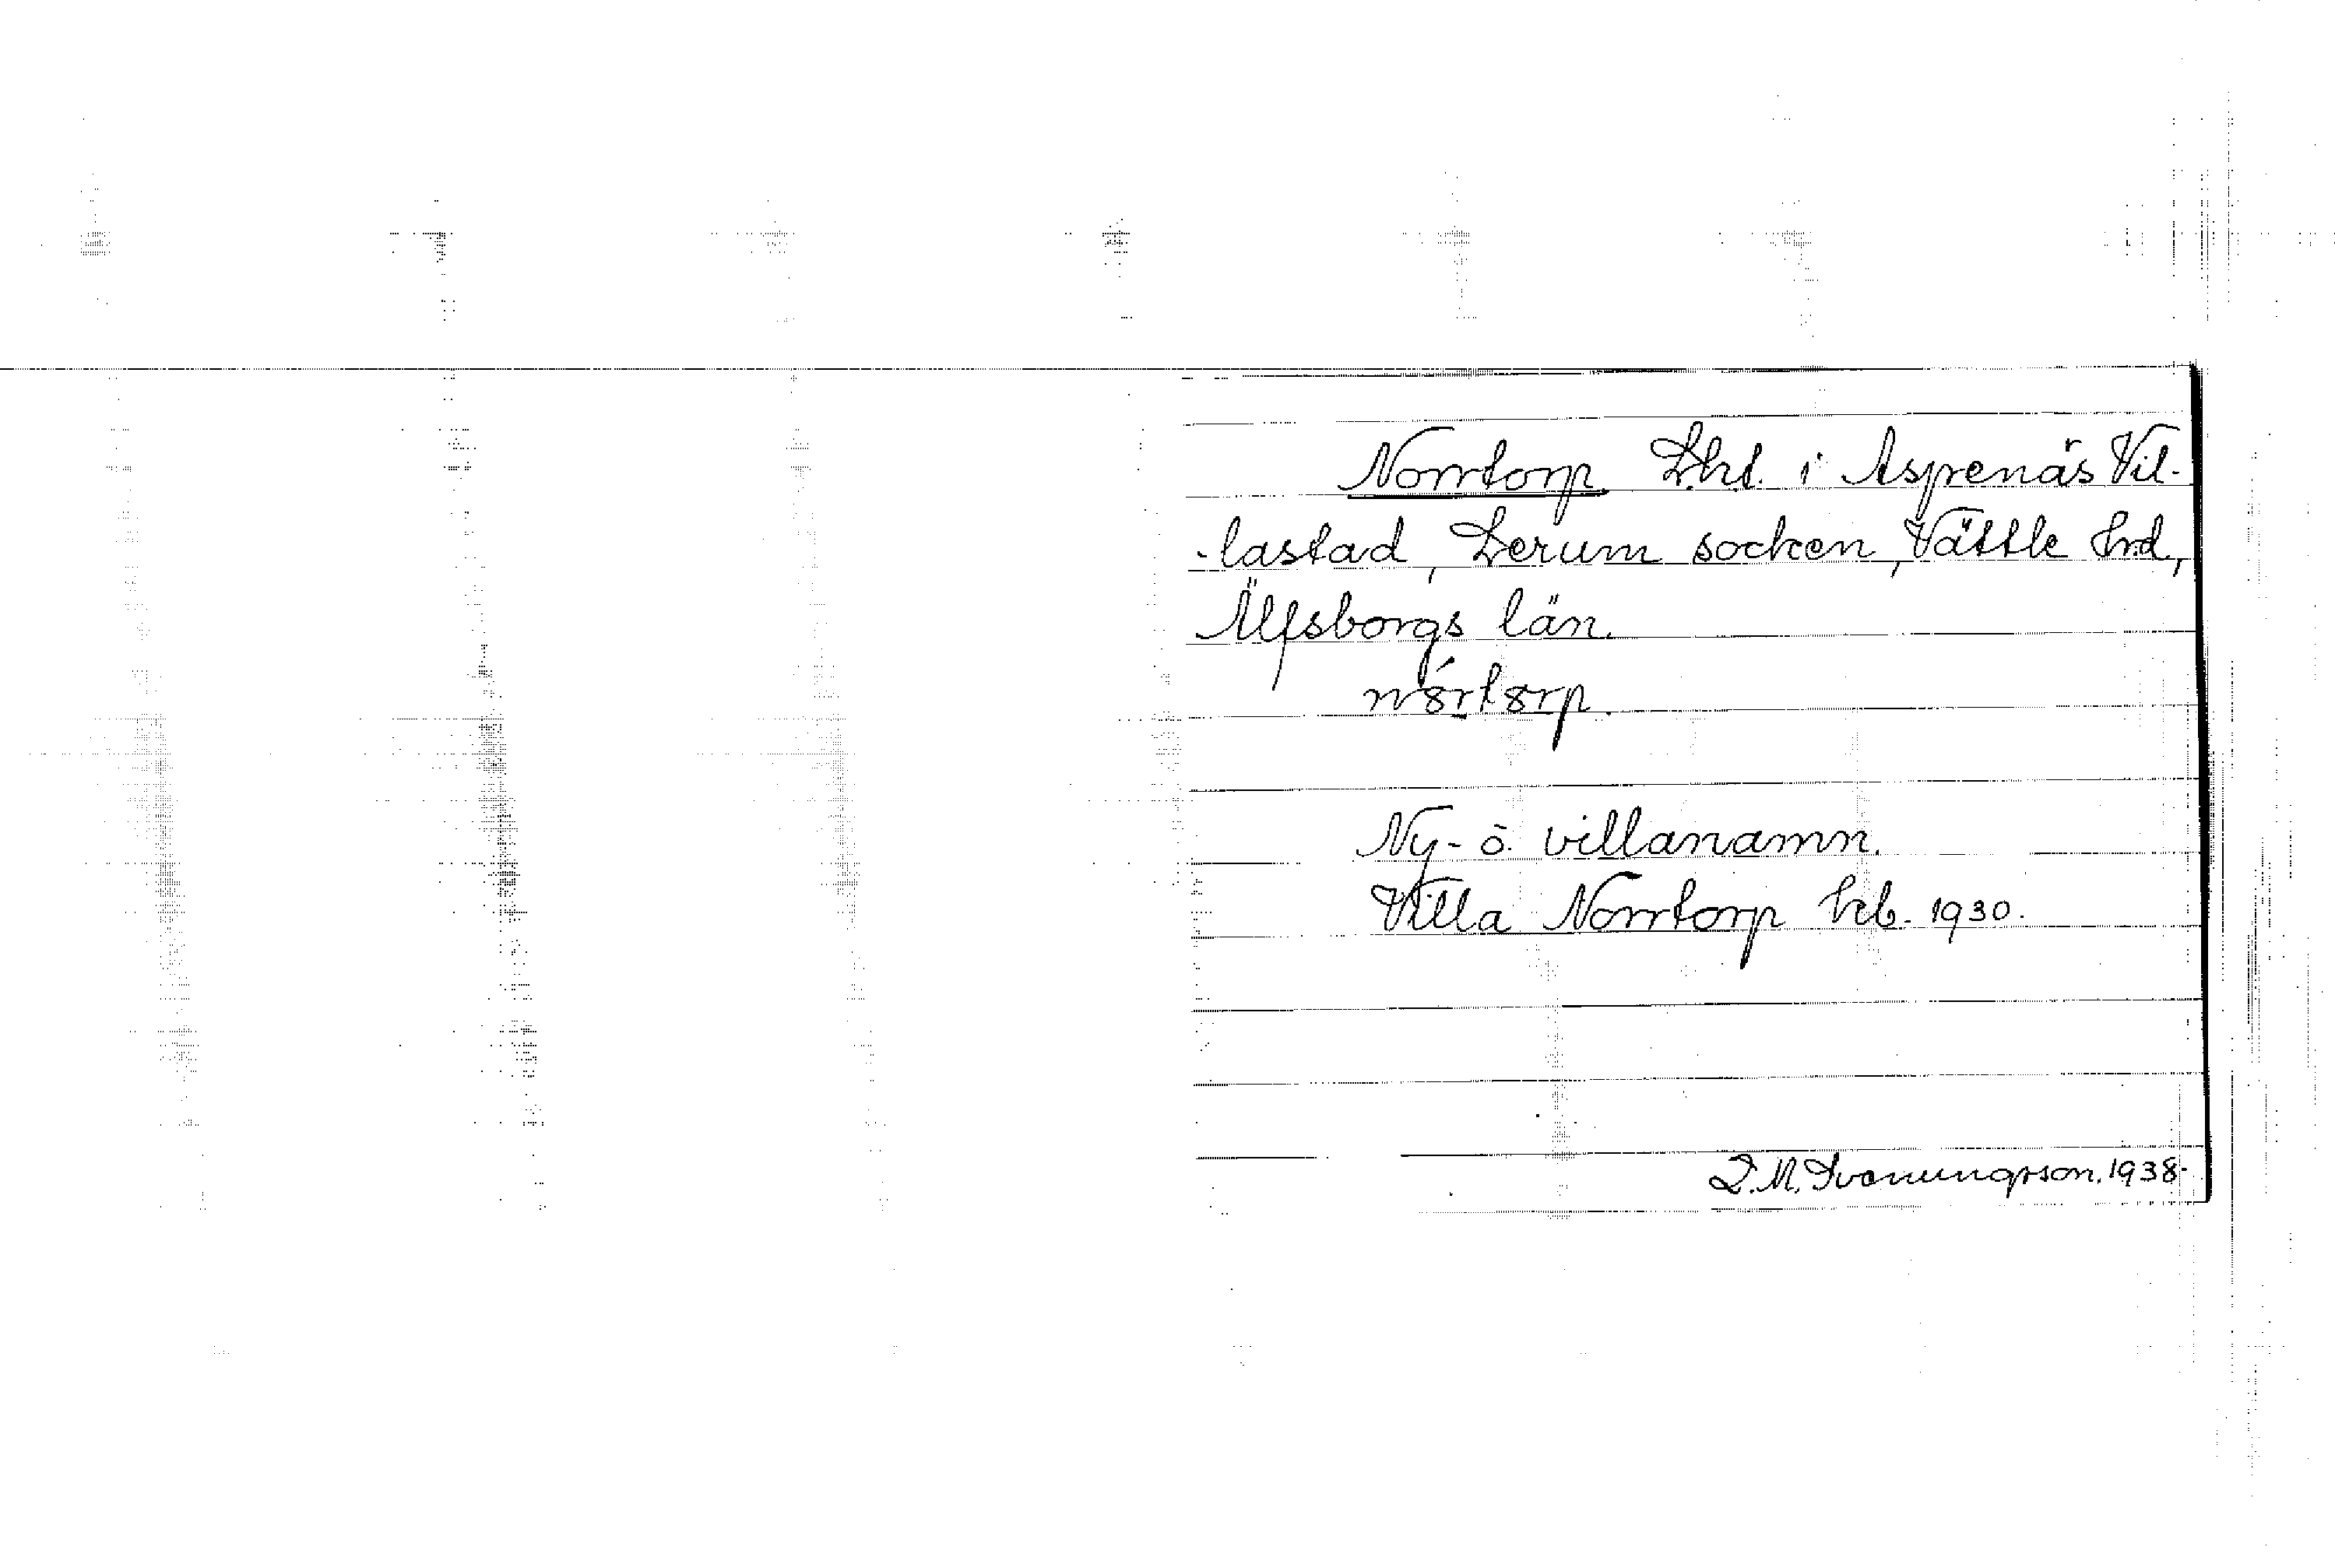 Norrtorp. Lht. i Aspenäs Vil-
-lastad, Lerum socken, Vättle hrd,
Älfsborgs län.
Ny- o. villanamn.
Villa Norrtorp krb. 1930.
D.M. Svenungsson. 1938.